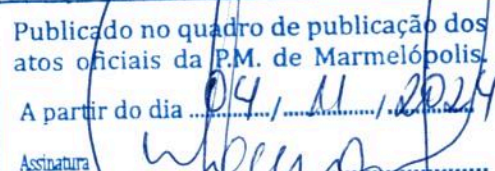 Publicado no quadro de publicação dos
atos oficiais da P.M. de Marmelópolis.
A partir do dia 04/11/2024
Assinatura